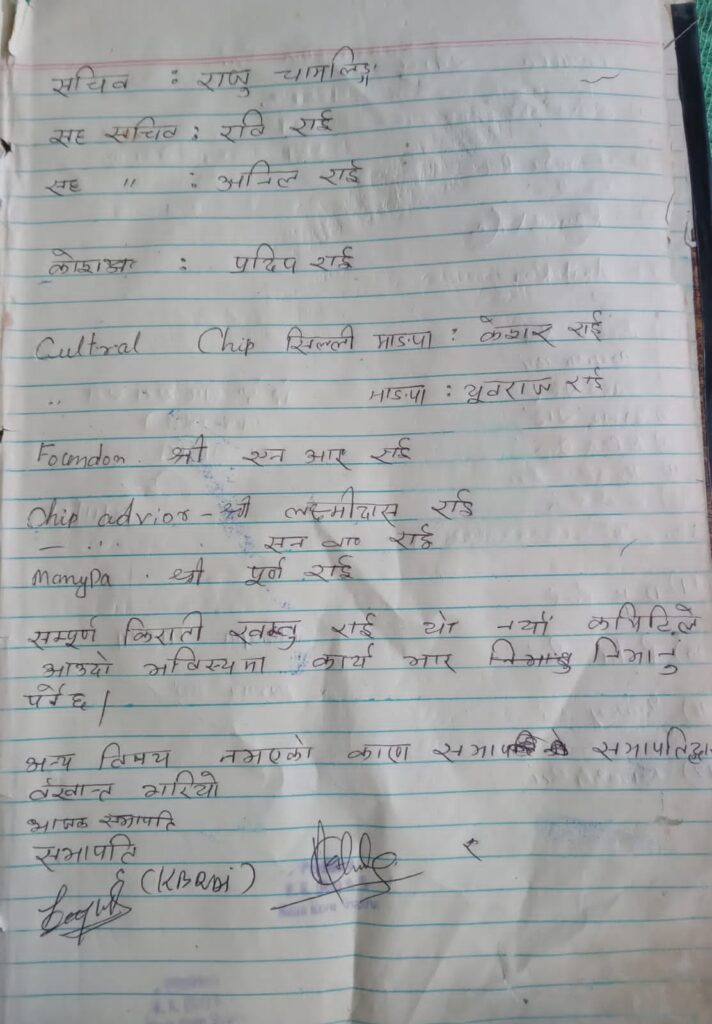 सचिव : राजु चामलिङ्ग
सह सचिव : रवि राई
सह " : अनिल राई
कोशाध्य : प्रदिप राई
Cultral Chip सिलली माङपा : केशर राई
" माङपा : यूवराज राई
Foundon. श्री एन आर राई
Chip advior - श्री लक्ष्मीदास राई
— " सन राई
Mangpa . श्री पूर्न राई
सम्पूर्ण किराती खम्बु राई यो नयाँ कमिटिले
आउदो भविस्यमा कार्य भार निभाउनु निभानु
पर्नेछ।
अन्य विषय नभएको कारण सभापतिद्वा
र्वखान्त गरियो
सभापति
सभापति
(KBRai)